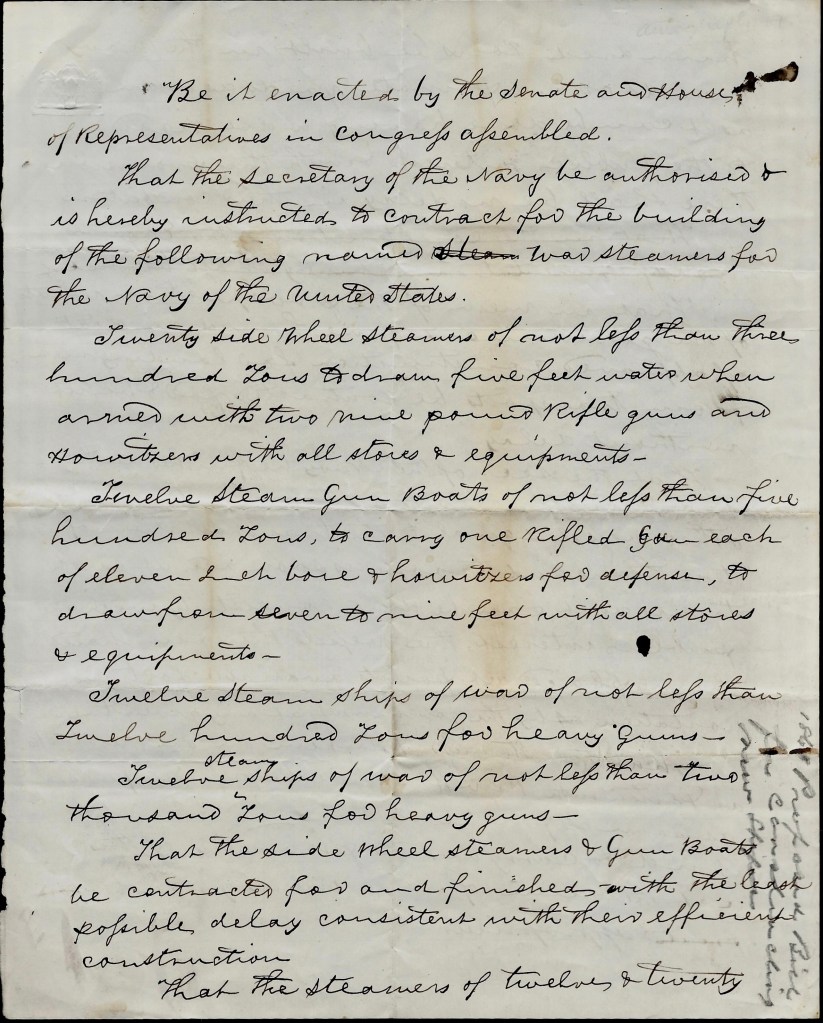 "Be it enacted by the Senate and House
of Representatives in Congress assembled.
That the Secretary of the Navy be authorised &
is hereby instructed to contract for the building
of the following named Steam War steamers for
the Navy of the United States.
Twenty side Wheel Steamers of not less than three
hundred Tons to draw five feet water when
armed with two nine pound Rifle guns and
Howitzers with all stores & equipments—
Twelve Steam Gun Boats of not less than five
hundred Tons, to carry one Rifled Gun each
of eleven Inch bore & howitzers for defense, to
draw from seven to nine feet with all stores
& equipments—
Twelve Steam ships of war of not less than
Twelve hundred Tons for heavy Guns—
steam
Twelve ships of war of not less than two
thousand Tons for heavy guns—
That the side Wheel steamers & Gun Boats
be contracted for and finished with the least
possible delay consistent with their efficient
construction
That the Steamers of twelve & twenty
1861 Proposed Bill
for Constructing